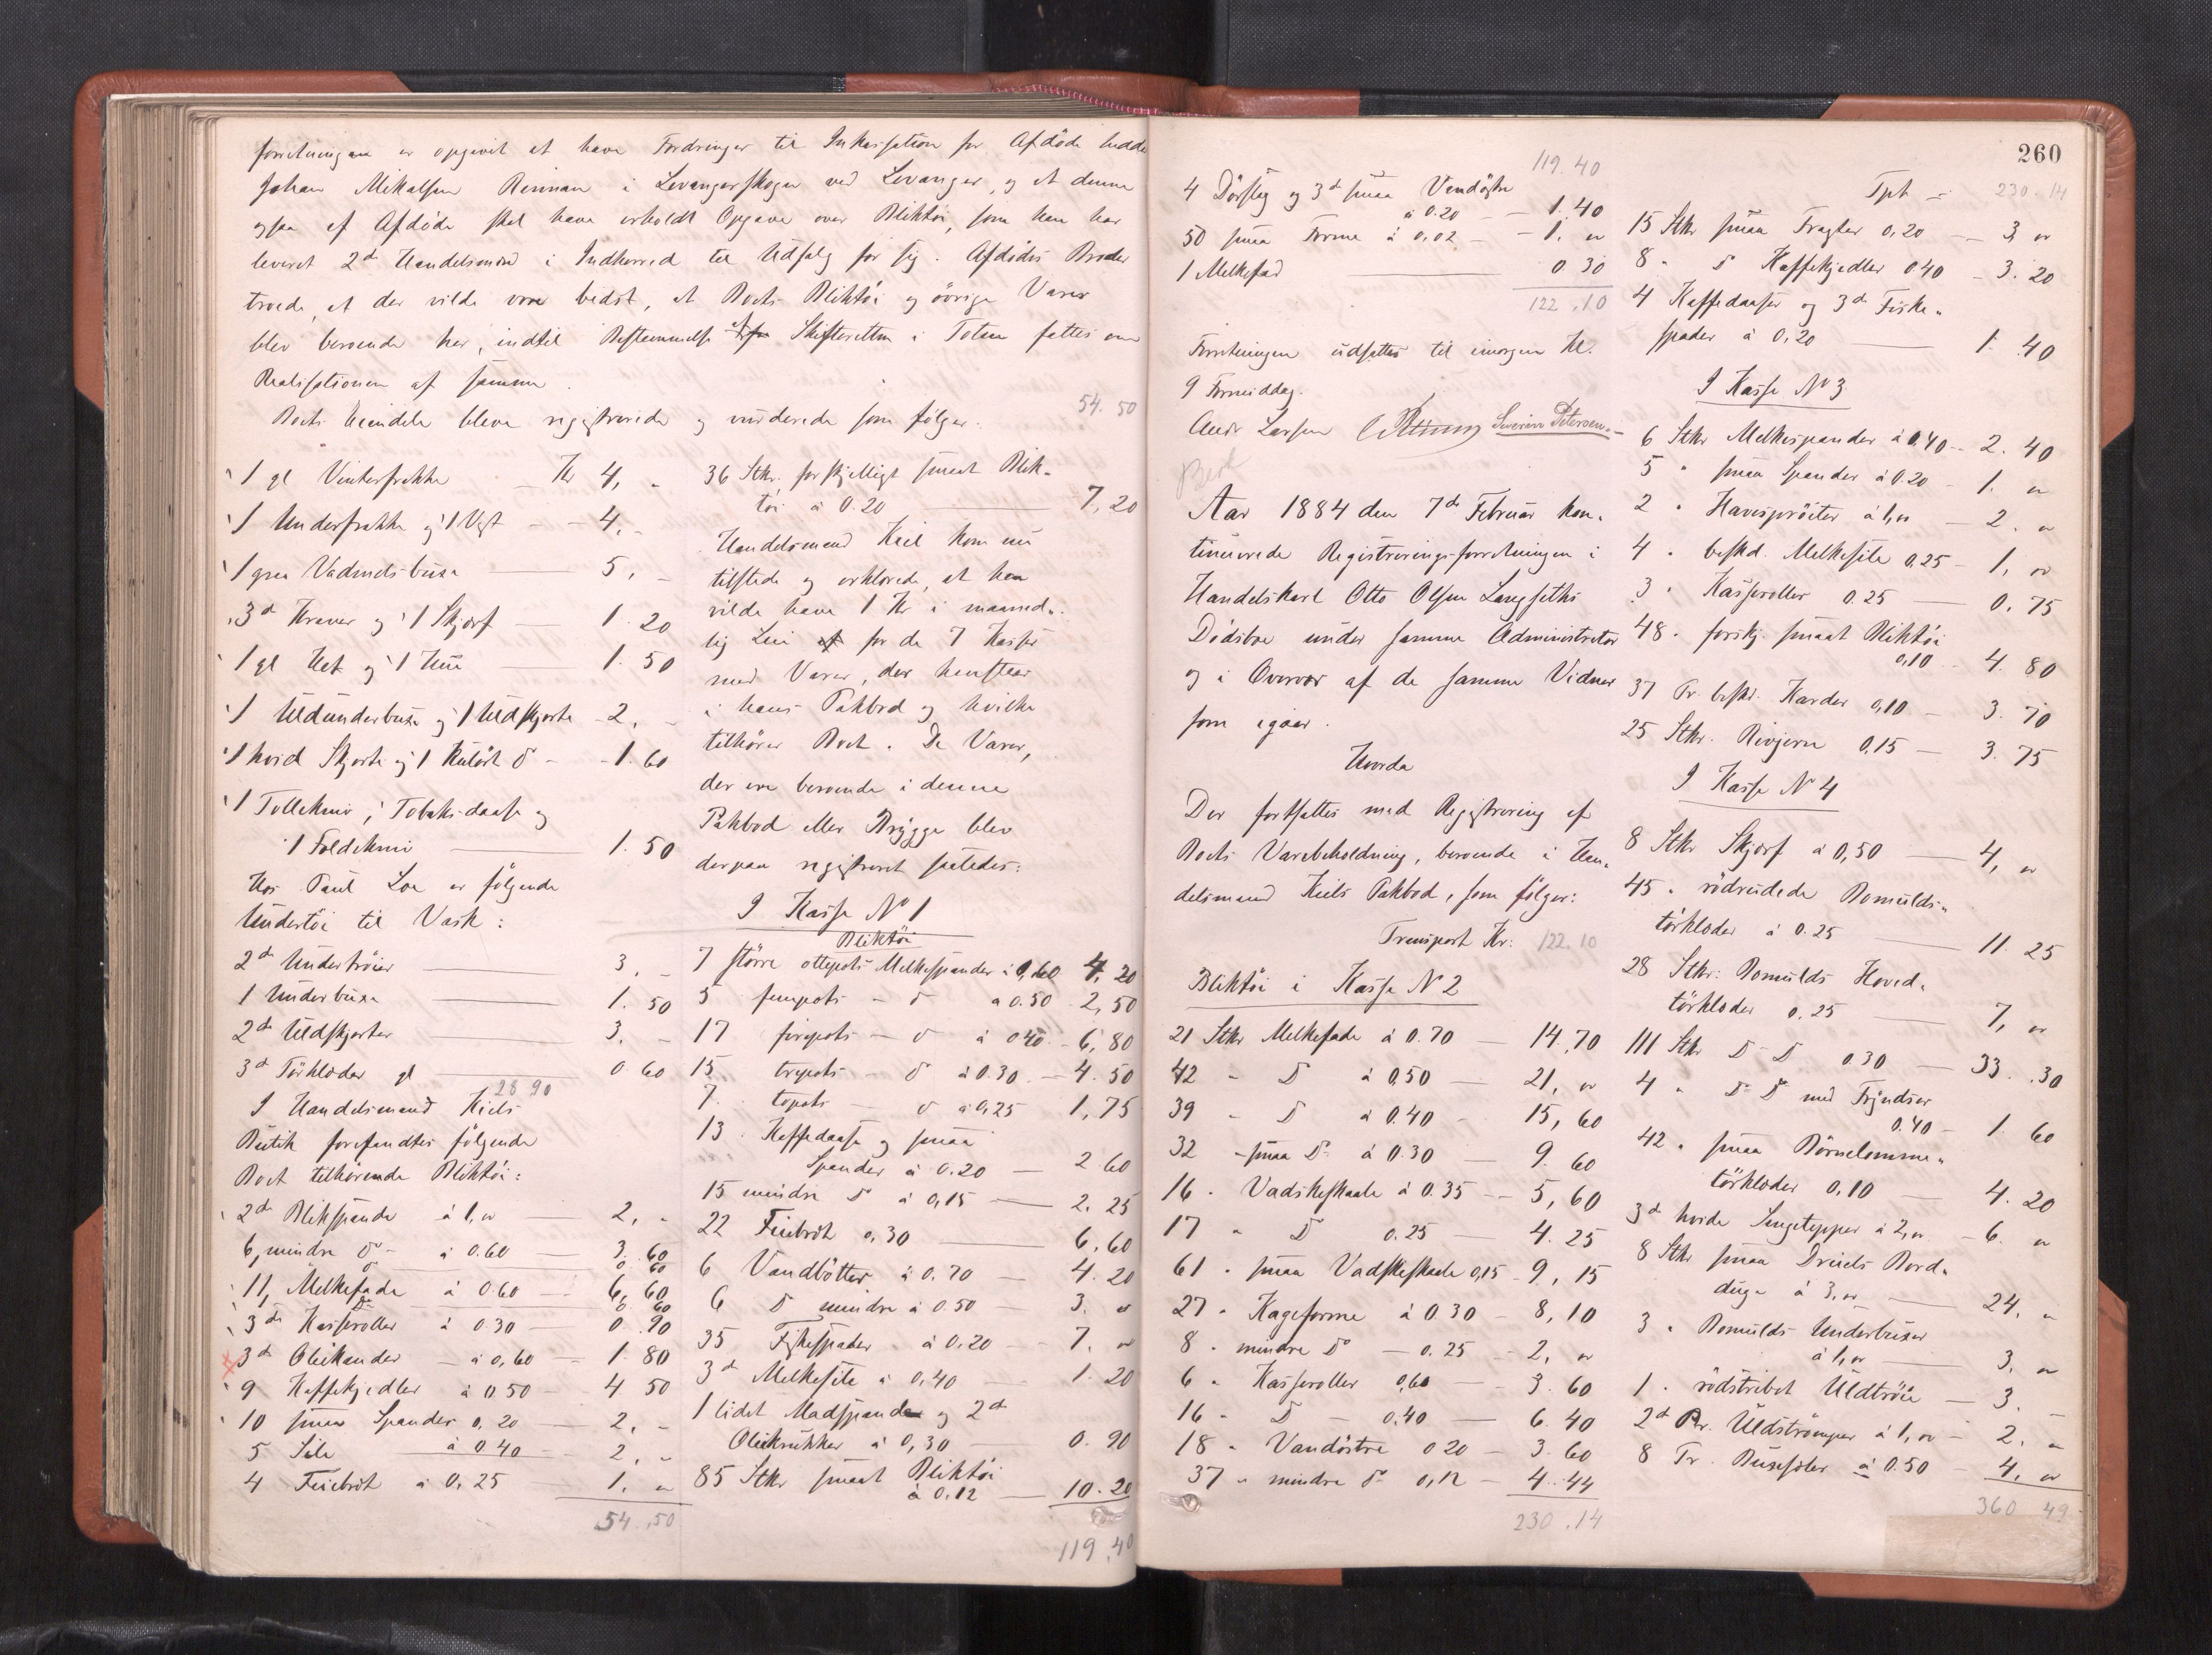 forretningen er opgivet at have Fordringer til Inkassation for Afdøde hedder
Johan Mikalsen Rennan i Levangerskogen ved Levanger, og at denne
ogsaa af Afdøde skal have erholdt Opgave over Bliktøi, som han har
leveret 2de Handelsmænd i Indherred til Udsalg for sig. Afdødes Broder
troede, at det vilde være bedst, at Boets Bliktøi og øvrige Varer
blev beroende her, indtil Bestemmelse fra Skifteretten i Toten fattes om
Realisationen af samme.
Boets Eiendele bleve registrerede og vurderede som følger.
1 gl Vinterfrakke Kr 4, "
1 Underfrakke og 1 Vest 4. -
1 graa Vadmels buxe 5, -
3de Kraver og 1 Skjærf 1. 20
1 gl Hat og 1 Hue 1. 50
1 Uldunderbuxe og 1 Uldskjorte 2. -
1 hvid Skjorte og 1 kulørt do 1. 60
1 Tollekniv, 1 Tobaksdaase og
1 Foldekniv 1. 50
Hos Paul Loe er følgende
Undertøi til Vask:
2de Undertrøier 3. -
1 Underbuxe 1. 50
2de Uldskjorter 3. -
3de Tørklæder gl 0 60
28 90
I Handelsmand Kiels
Butik forefandtes følgende
Boet tilhørende Bliktøi:
2de Blikspande à 1, 00 2, "
6, mindre do à 0.60 3. 60
11, Melkefade à 0.60 6, 60
3de Kasseroller à 0.30 0. 90
3de Oliekander à 0,60 1. 80
9 Kaffekjedler à 0 50 4 50
10 smaa Spander 0,20 2, -
5 Sile à 0 40 2, "
4 Feiebrøt à 0,25 1. "
54.,50
54. 50
36 Stkr. forskjelligt smaat Blik-
tøi à 0.20 7,20
Handelsmand Kiel kom nu
tilstede og erklærede, at han
vilde have 1 Kr i maaned-
lig Leie af for de 7 Kasser
med Varer, der henstaar
i hans Pakbod og hvilke
tilhører Boet. De Varer,
der ere beroende i denne
Pakbod eller Brygge blev
derpaa registreret saaledes:
I Kasse No 1
Bliktøi
7 større ottepots Melkespander à 0,60 4, 20
5 fempots - do à 0.50 2,50
17 firepots - do à 0 40 6,80
15 trepots - do à 0.30 4.50
7. topots - do à 0,25 1,75
13. Kaffedaase og smaa
Spander à 0.20 2 60
15 mindre do à 0,15 2. 25
22 Feiebrøt 0,30 6,60
6 Vandbøtter à 0.70 4. 20
6 D mindre à 0.50 3. "
35 Fiskespader à 0,20 7. "
3de Melkesile à 0,40 1. 20
1 lidet Madspand og 2de
Oliekrukker à 0,30 0. 90
85 Stkr smaat Bliktøi
à 0.12 10.20
119,40
260
119.40
4 Dørslag og 3de smaa Vandøstre
à 0.20 1.40
50 smaa Forme à 0,02 1. "
1 Melkefad 0 30
122.10
Forretningen udsattes til imorgen Kl.
9 Formiddag.
Andr Larsen Severin Petersen
Aar 1884 den 7de Februar kon-
tinuerede Registreringsforretningen i
Handelskarl Otto Olsen Langseths
Dødsbo under samme Administrator
og i Overvær af de samme Vidner
som igaar.
Hvorda
Der fortsattes med Registrering af
Boets Varebeholdning, beroende i Han-
delsmand Kiels Pakbod, som følger:
Transport Kr: 122.10
Bliktøi i Kasse No 2
21 Stkr Melkefade à 0.70 14.70
42 " D à 0,50 21, "
39 " D à 0.40 15,60
32 - smaa D à 0.30 9. 60
16 - Vadskeskaale à 0.35 5,60
17 " D 0.25 4. 25
61 - smaa Vadskeskaale 0,15 9, 15
27 - Kageforme à 0.30 8,10
8 - mindre do 0.25 2, "
6 " Kasseroller 0,60 3.60
16 - D 0,40 6.40
18 - Vandøstre 0 20 3.60
37 " mindre do 0,12 4.44
230.14
Tpt - 230.14
15 Stkr smaa Tragter 0,20 3 "
8 " D Kaffekjedler 0 40 3. 20
4 Kaffedaaser og 3de Fiske-
spader à 0,20 1. 40
I Kasse No 3
6 Stkr Melkespander à 0.40 2. 40
5 " smaa Spander à 0.20 1. "
2 " Havesprøiter à 1,00 2. "
4 " beskd. Melkesile 0,25 1, "
3 " Kasseroller 0.25 0,75
48 - forskj. smaat Bliktøi
0,10 4. 80
37 Pr. beskd. Karder 0,10 3. 70
25 Stkr. Rivjern 0,15 3. 75
I Kasse No 4
8 Stkr Skjærf à 0,50 4, "
45 " rødrudede Bomulds-
tørklæder à 0.25 11. 25
28 Stkr: Bomulds Hoved-
tørklæder 0.25 7, "
111 Stkr D D 0 30 33.30
4 " D D med Fryndser
0.40 1. 60
42 " smaa Børnelomme-
tørklæder 0,10 4. 20
3de hvide Sengetepper à 2,00 6. "
8 Stkr smaa Dreiels Bord-
duge à 3,00 24, "
3 " Bomulds Underbuxer
à 1,00 3, "
1 - rødstribet Uldtrøie 3. -
2de Par. Uldstrømper à 1,00 2, "
8 Pr. Buxesæler à 0.50 4, "
360 49